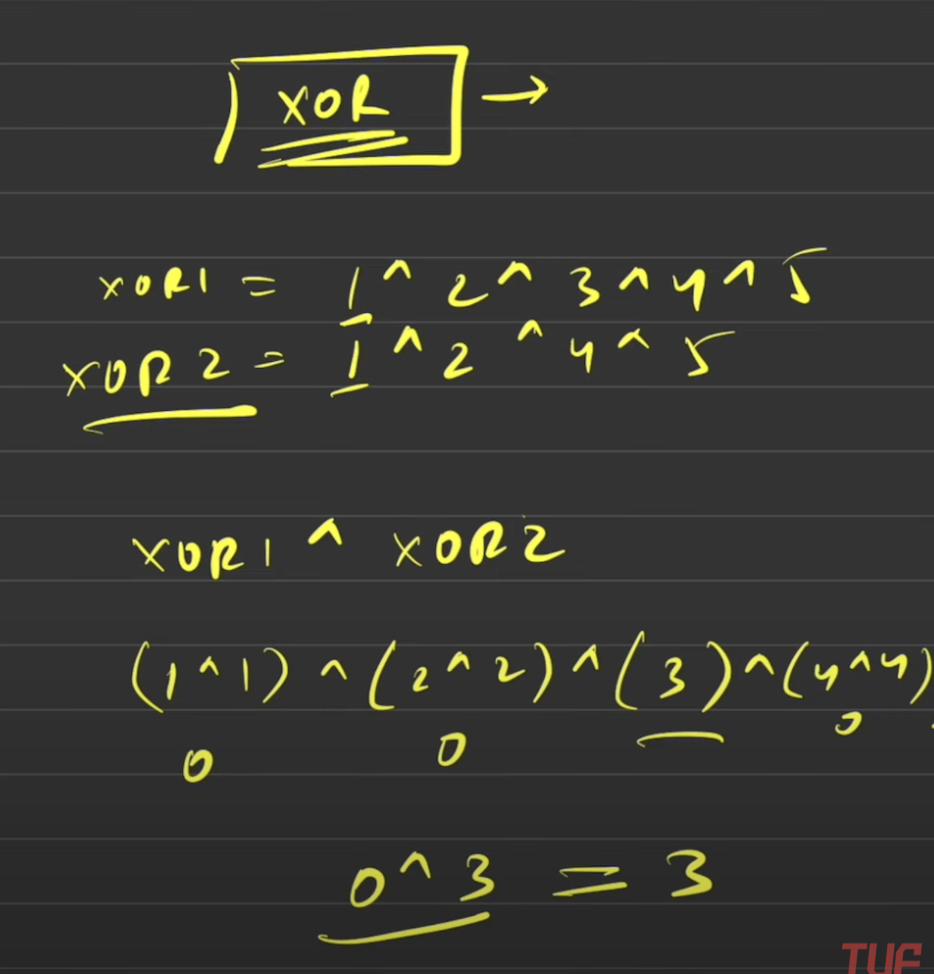 XOR →
XOR1 = 1 ^ 2 ^ 3 ^ 4 ^ 5
XOR2 = 1 ^ 2 ^ 4 ^ 5
XOR1 ^ XOR2
(1^1) ^ (2^2) ^ (3) ^ (4^4)
0 0 0
0^3 = 3
TUF